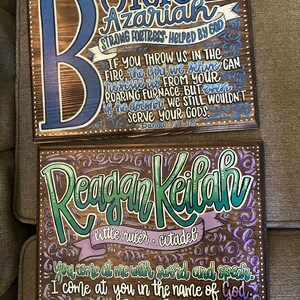 Azariah
STRONG FORTRESS · HELPED BY GOD
IF YOU THROW US IN THE
FIRE, the God we serve CAN
rescue us FROM YOUR
ROARING FURNACE. BUT even
if he doesn't, WE STILL WOULDN'T
SERVE YOUR GODS.
Reagan Keilah
little ruler · citadel
You come at me with sword and spear,
I come at you in the name of God,